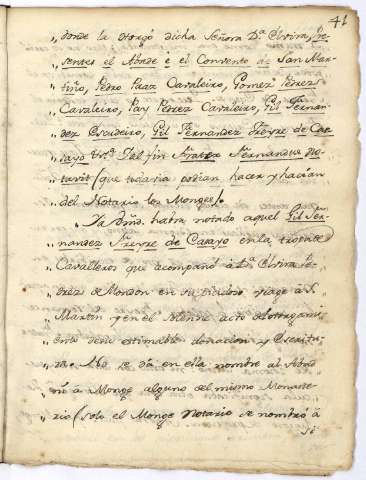 41
„ donde la otorgó dicha Señora D.ª Elvira, Pre-
„ sentes el Abade e el Convento de San Mar-
„ tiño, Pedro Paaz Cavaleiro, Gomez Perez
„ Cavaleiro, Pay Perez Cavaleiro, Gil Fernan-
„ dez Escudeiro, Gil Fernandez Freyre de Ca-
„ rayo &c.ª Tal fin Frater Fernandus No-
„ tavit (que todavia podian hacer y hacian
„ del Notario los Monges).
„ Ya Vmd. habra notado aquel Gil Fer-
„ nandez Freyre de Carayo en la
„ Cavalleros que acompanó à D.ª Elvira Pe-
„ rez de Mondon en su piadoso viage a S.
„ Martin y en el solemne acto del otorgami-
„ ento de su estimable donacion y Escritu-
„ ra. No se dà en ella nombre al Abad
„ ni à Monge alguno del mismo Monaste-
„ rio (solo el Monge Notario se nombró à
si